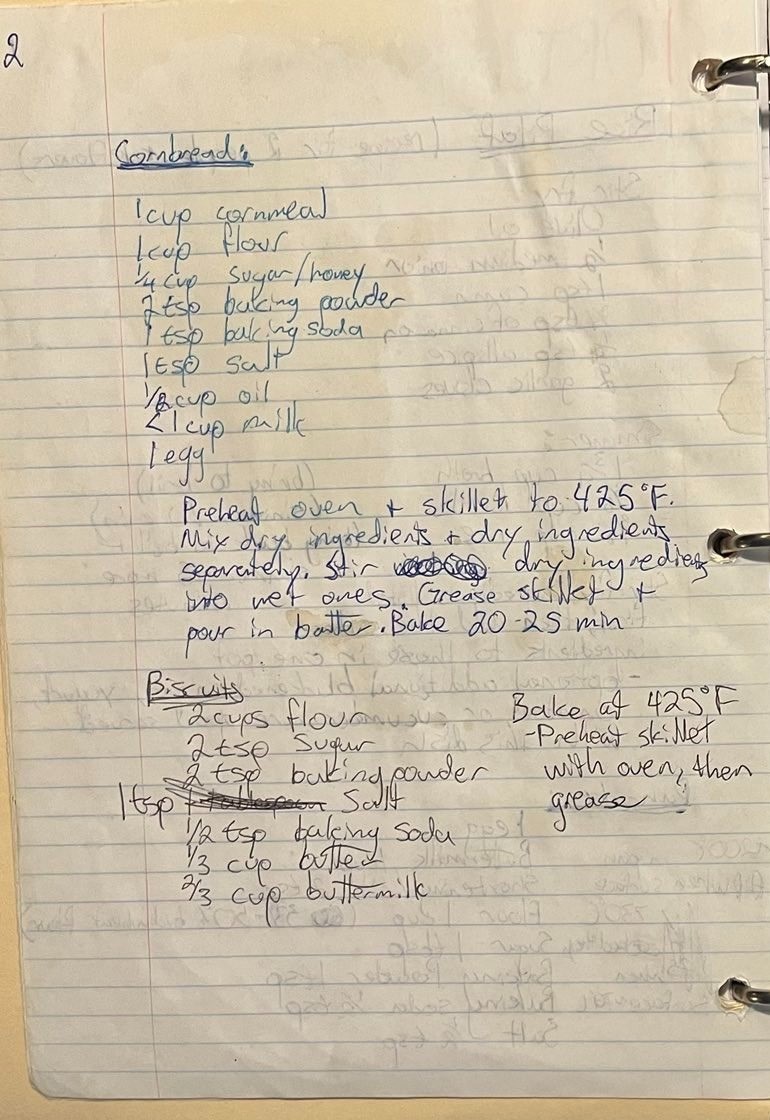 2
Cornbread:
1 cup cornmeal
1 cup flour
1/4 cup sugar/honey
2 tsp baking powder
1 tsp baking soda
1 tsp salt
1/2 cup oil
<1 cup milk
1 egg
Preheat oven + skillet to 425°F.
Mix dry ingredients + dry ingredients
separately. Stir dry ingredients
into wet ones. Grease skillet +
pour in batter. Bake 20-25 min
Biscuits
2 cups flour
2 tsp sugar
2 tsp baking powder
1 tsp salt
1/2 tsp baking soda
1/3 cup butter
2/3 cup buttermilk
Bake at 425°F
-Preheat skillet
with oven, then
grease